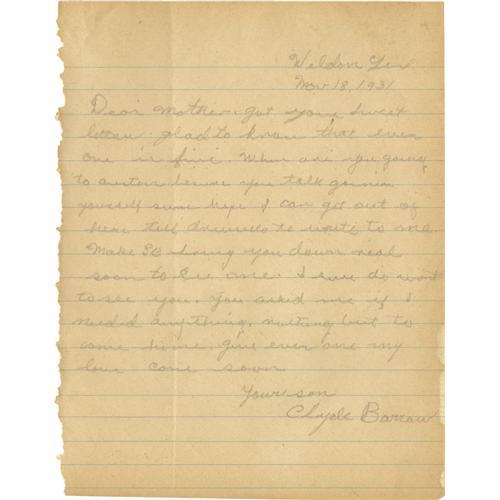 Weldon Tex
Nov 18, 1931
Dear Mother. got your sweet
letter. glad to know that ever
one is fine. When are you going
to austin because you talk
yourself sure hope I can get out of
hear tell to write to me.
Make bring you down real
soon to see me. I sure do want
to see you. You asked me if I
needed anything. nothing but to
come home. give ever one my
love come soon
Your son
Clyde Barrow